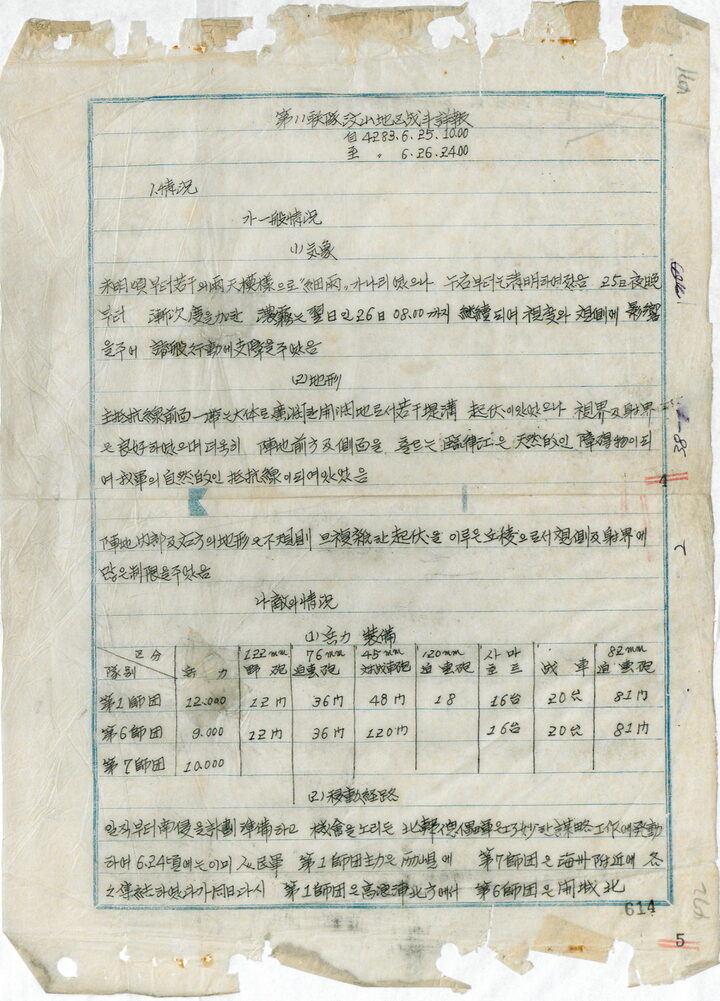 第11聯隊汶山地区战斗詳報
自 4283.6.25.10.00
至 〃 6.26.24.00
1.情況
가 一般情況
(1) 気象
未明頃부터 若干의 雨天模樣으로 "細雨"가 나리였으나 午后부터는 淸明하여졌음 25日夜晩
부터 漸次 度을 加한 濃霧는 翌日인 26日 08.00까지 継續되여 視度와 視測에 影響
을 주어 諸般行動에 支障을 주었음
(2) 地形
主抵抗線前面一帶는 大体로 廣濶한 開濶地로서 若干 堤溝 起伏이 있었으나 視界 及 射界
은 良好하였으며 더욱히 陣地前方 及 側面을 흐르는 臨津江은 天然的인 障碍物이 되
여 我軍의 自然的인 抵抗線이 되여 있었음
陣地内部 及 右方의 地形은 不規則 且 複雜한 起伏을 이루은 丘稜으로서 視測 及 射界에
많은 制限을 주었음
나 敵의 情況
(1) 兵力 裝備
区分 隊別 兵力 122mm 野砲 76mm 迫擊砲 45mm 対战車砲 120mm 迫擊砲 사이마 호트 战車 82mm 迫擊砲
第1師団 12.000 12门 36门 48门 18 16台 20台 81门
第6師団 9.000 12门 36门 120门 16台 20台 81门
第7師団 10.000
(2) 移動経路
일직부터 南侵을 計劃 準備하고 機會을 노리는 北韓傀儡軍은 巧妙한 謀略工作에 発動
하여 6.24頃에는 이미 人民軍 第1師団主力은 南川에 第7師団은 海州附近에 各
々 集結하였다가 同日 다시 第1師団은 高浪浦北方에서 第6師団은 開城北
614
4
5